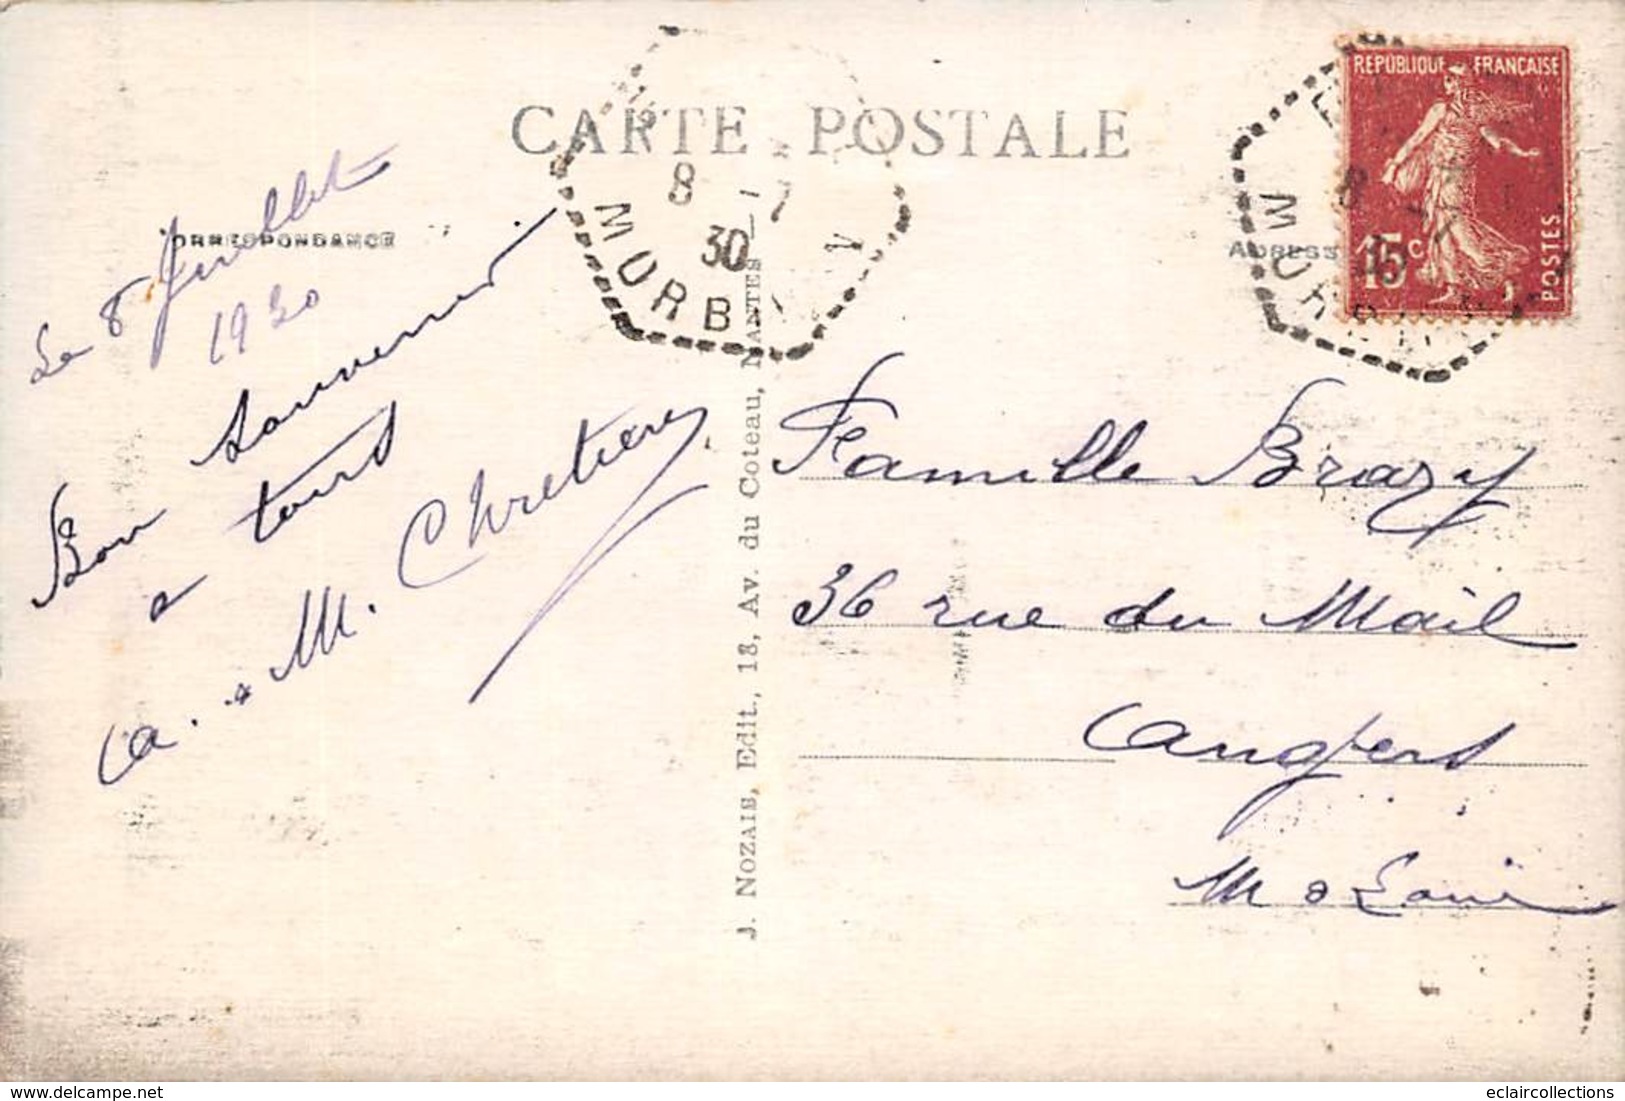 CARTE POSTALE
REPUBLIQUE FRANÇAISE
15c
POSTES
8 7
30
MORBI
MORBI
CORRESPONDANCE
ADRESS
Le 8 Juillet
1930
Bon souvenir
a tous
M. Chretien
J. NOZAIS, Edit., 18, Av. du Coteau, NANTES
Famille Brazy
36 rue du Mail
Angers
M & Loire
eclaircollections